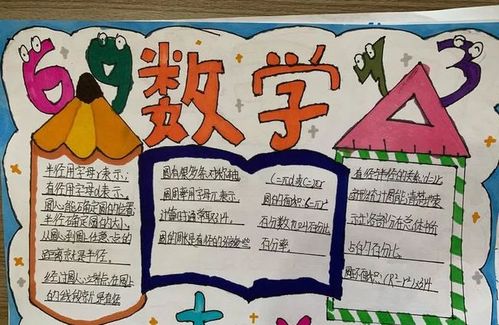 69 数学 93
半径用字母r表示；
直径用字母d表示。
圆心能确定圆的位置，
半径确定圆的大小。
从圆心到圆任意一点的
距离就是半径。
经过圆心
的线段就是直径
圆有无数条对称轴
圆周率用字母π表示，
计算时通常取3.14。
圆的周长是直径的
C=πd或C=2πr
圆的面积：S=πr²
百分数
百分率。
直径与半径的关系：d=2r
扇形统计图能清楚地表
示出各部分占总体的
占的百分比。
圆环面积：(R²-r²)×3.14